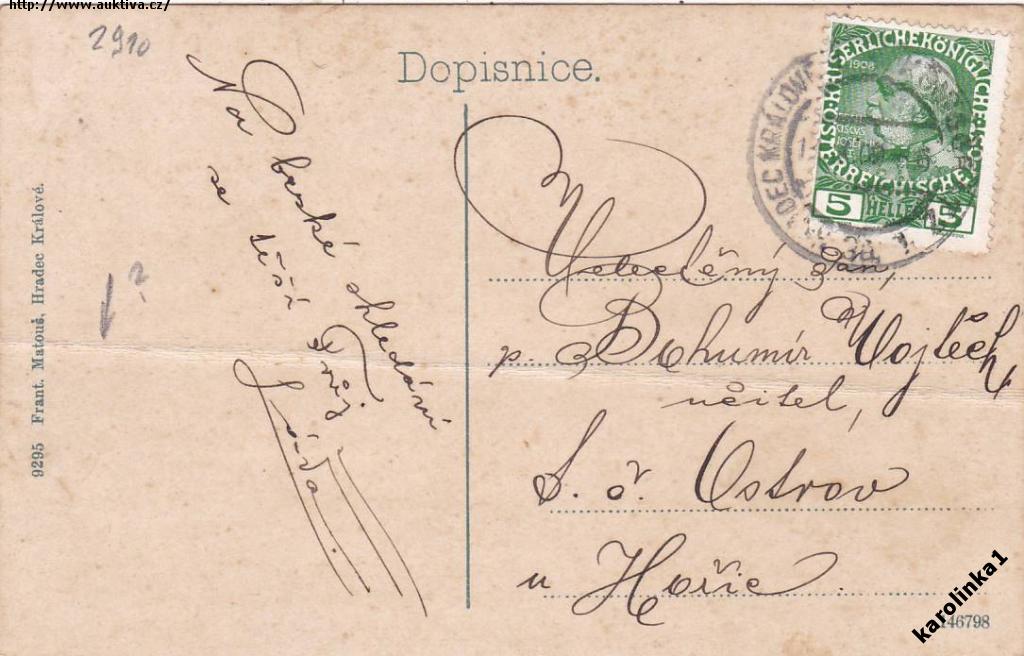 http://www.auktiva.cz/
2910
Dopisnice.
Na brzké shledání
se těší Tvůj
Láďa.
9295 Frant. Matouš, Hradec Králové.
KAISERLICHE KÖNIGLICHE
ÖSTERREICHISCHE
1908
5 HELLER 5
HRADEC KRÁLOVÉ
Velectěný pan,
p. Bohumír Vojtěch,
učitel,
Ostrov
u Hořic.
146798
karolinka1